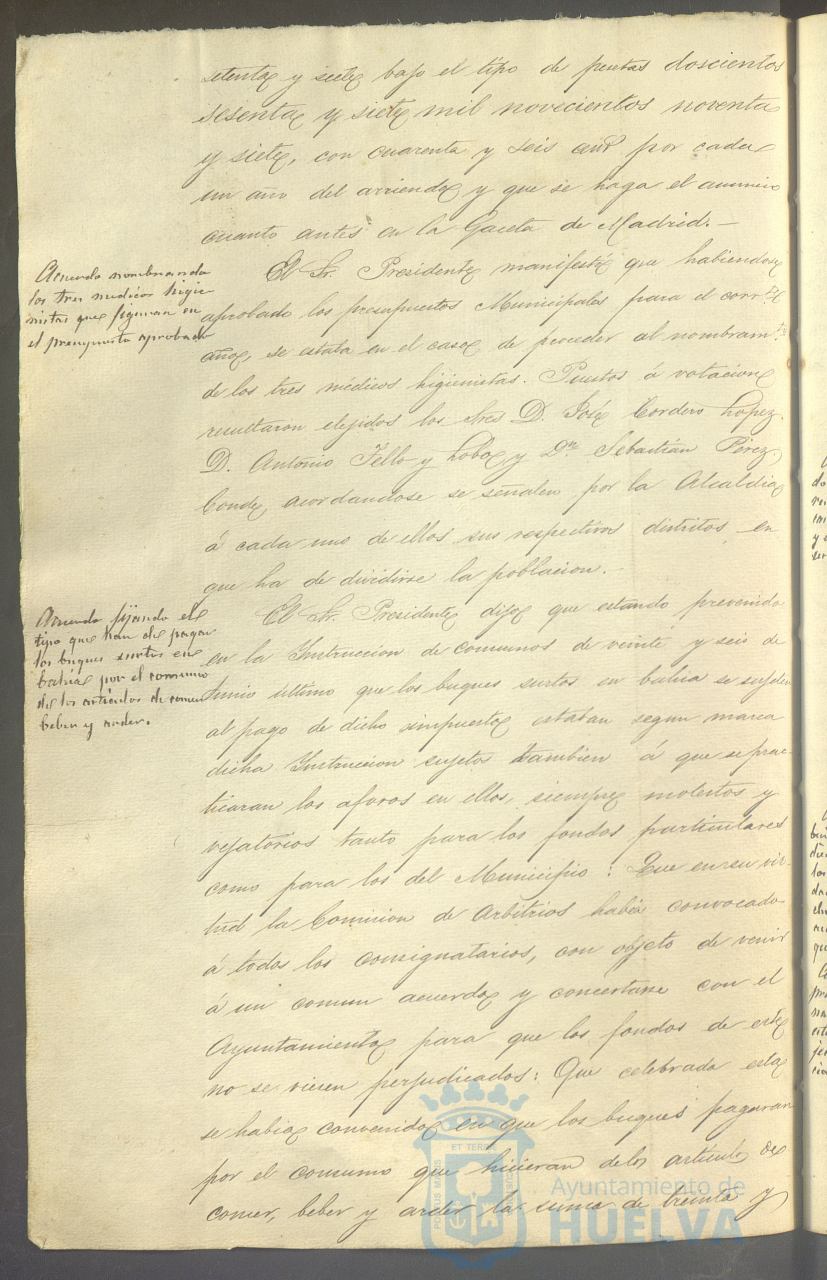 setenta y siete bajo el tipo de pesetas doscientos
sesenta y siete mil novecientos noventa
y siete, con cuarenta y seis cent.s por cada
un año del arriendo y que se haga el anuncio
cuanto antes en la Gaceta de Madrid.—
Acuerdo nombrando
los tres medicos higie
nistas que figuran en
el presupuesto aprobado
El Sr. Presidente manifestó que habiendose
aprobado los presupuestos Municipales para el corr.te
año, se estaba en el caso de proceder al nombram.to
de los tres médicos higienistas. Puestos á votacion
resultaron elejidos los Sres D. José Cordero Lopez.
D. Antonio Tello y Lobo y Dn. Sebastián Pérez
Conde, acordandose se señalen por la Alcaldia
á cada uno de ellos sus respectivos distritos en
que ha de dividirse la poblacion.—
Acuerdo fijando el
tipo que han de pagar
los buques surtos en
bahia por el consumo
de los articulos de comer
beber y arder.
El Sr. Presidente dijo que estando prevenido
en la Instruccion de consumos de veinte y seis de
Junio último que los buques surtos en bahia se sujeten
al pago de dicho impuesto estaban segun marca
dicha Instruccion sujetos tambien á que se prac-
ticaran los aforos en ellos, siempre molestos y
vejatorios tanto para los fondos particulares
como para los del Municipio: Que en su vir-
tud la Comision de Arbitrios habia convocado
á todos los consignatarios, con objeto de venir
á un comun acuerdo y concertarse con el
Ayuntamiento para que los fondos de este
no se viesen perjudicados: Que celebrada esta
se habia convenido en que los buques pagaran
por el consumo que hicieran de los articulos de
comer, beber y arder la suma de treinta y
PORTUS MARIS
ET TERRE
CUSTODIA
Ayuntamiento de
HUELVA